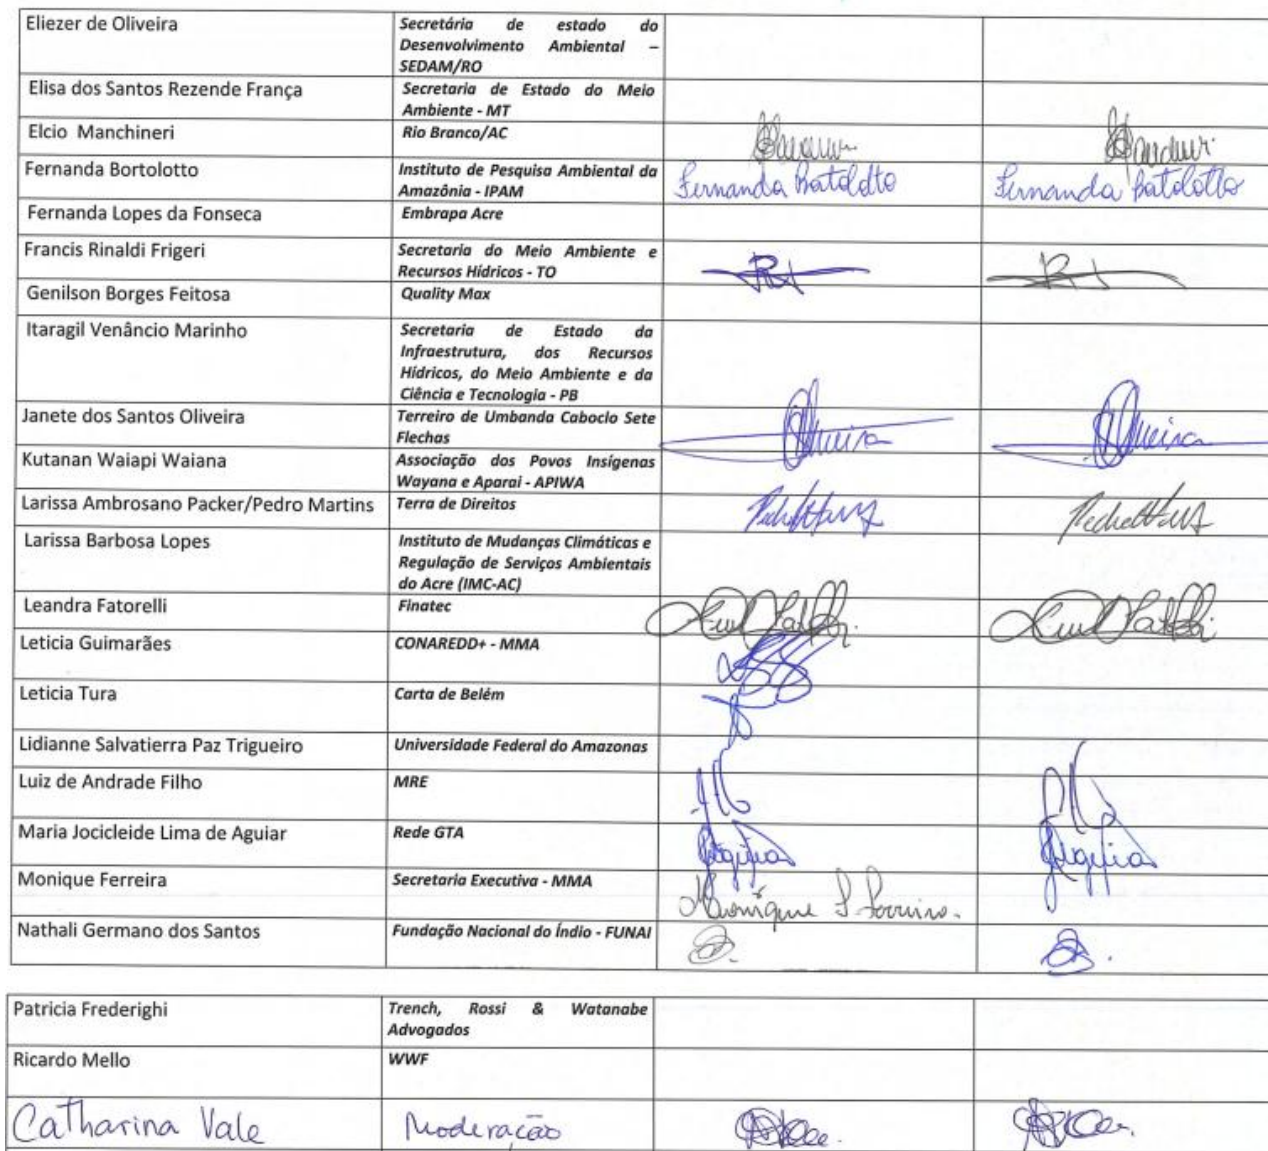 Eliezer de Oliveira
Secretária de estado do
Desenvolvimento Ambiental –
SEDAM/RO
Elisa dos Santos Rezende França
Secretaria de Estado do Meio
Ambiente - MT
Elcio Manchineri
Rio Branco/AC
Fernanda Bortolotto
Instituto de Pesquisa Ambiental da
Amazônia - IPAM
Fernanda Bortolotto
Fernanda Bortolotto
Fernanda Lopes da Fonseca
Embrapa Acre
Francis Rinaldi Frigeri
Secretaria do Meio Ambiente e
Recursos Hídricos - TO
Genilson Borges Feitosa
Quality Max
Itaragil Venâncio Marinho
Secretaria de Estado da
Infraestrutura, dos Recursos
Hídricos, do Meio Ambiente e da
Ciência e Tecnologia - PB
Janete dos Santos Oliveira
Terreiro de Umbanda Caboclo Sete
Flechas
Kutanan Waiapi Waiana
Associação dos Povos Insígenas
Wayana e Aparai - APIWA
Larissa Ambrosano Packer/Pedro Martins
Terra de Direitos
Larissa Barbosa Lopes
Instituto de Mudanças Climáticas e
Regulação de Serviços Ambientais
do Acre (IMC-AC)
Leandra Fatorelli
Finatec
Leticia Guimarães
CONAREDD+ - MMA
Leticia Tura
Carta de Belém
Lidianne Salvatierra Paz Trigueiro
Universidade Federal do Amazonas
Luiz de Andrade Filho
MRE
Maria Jocicleide Lima de Aguiar
Rede GTA
Monique Ferreira
Secretaria Executiva - MMA
Monique S. Ferreira.
Nathali Germano dos Santos
Fundação Nacional do Índio - FUNAI
Patricia Frederighi
Trench, Rossi & Watanabe
Advogados
Ricardo Mello
WWF
Catharina Vale
Moderação